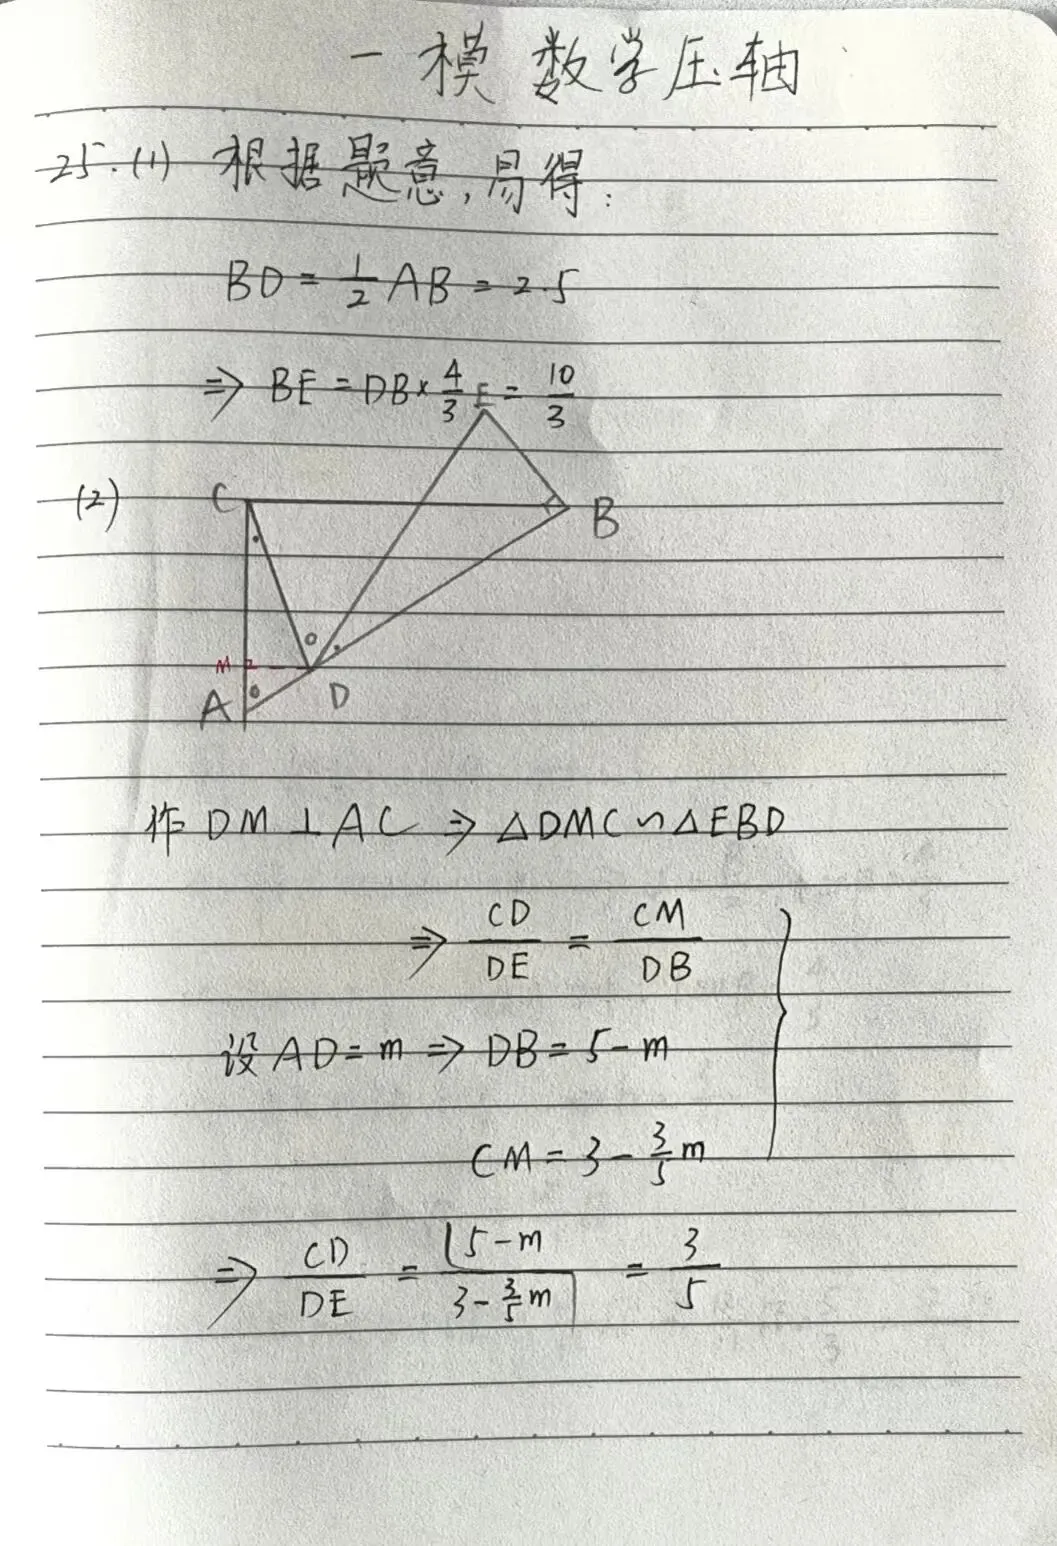 一模 数学压轴
25.(1) 根据题意,易得:
BD = 1/2 AB = 2.5
⇒ BE = DB × 4/3 = 10/3
(2)
E
C
B
M
A
D
作 DM ⊥ AC ⇒ △DMC ∽ △EBD
⇒ CD/DE = CM/DB
设 AD = m ⇒ DB = 5 - m
CM = 3 - 3/5 m
⇒ CD/DE = (5 - m)/(3 - 3/5 m) = 3/5